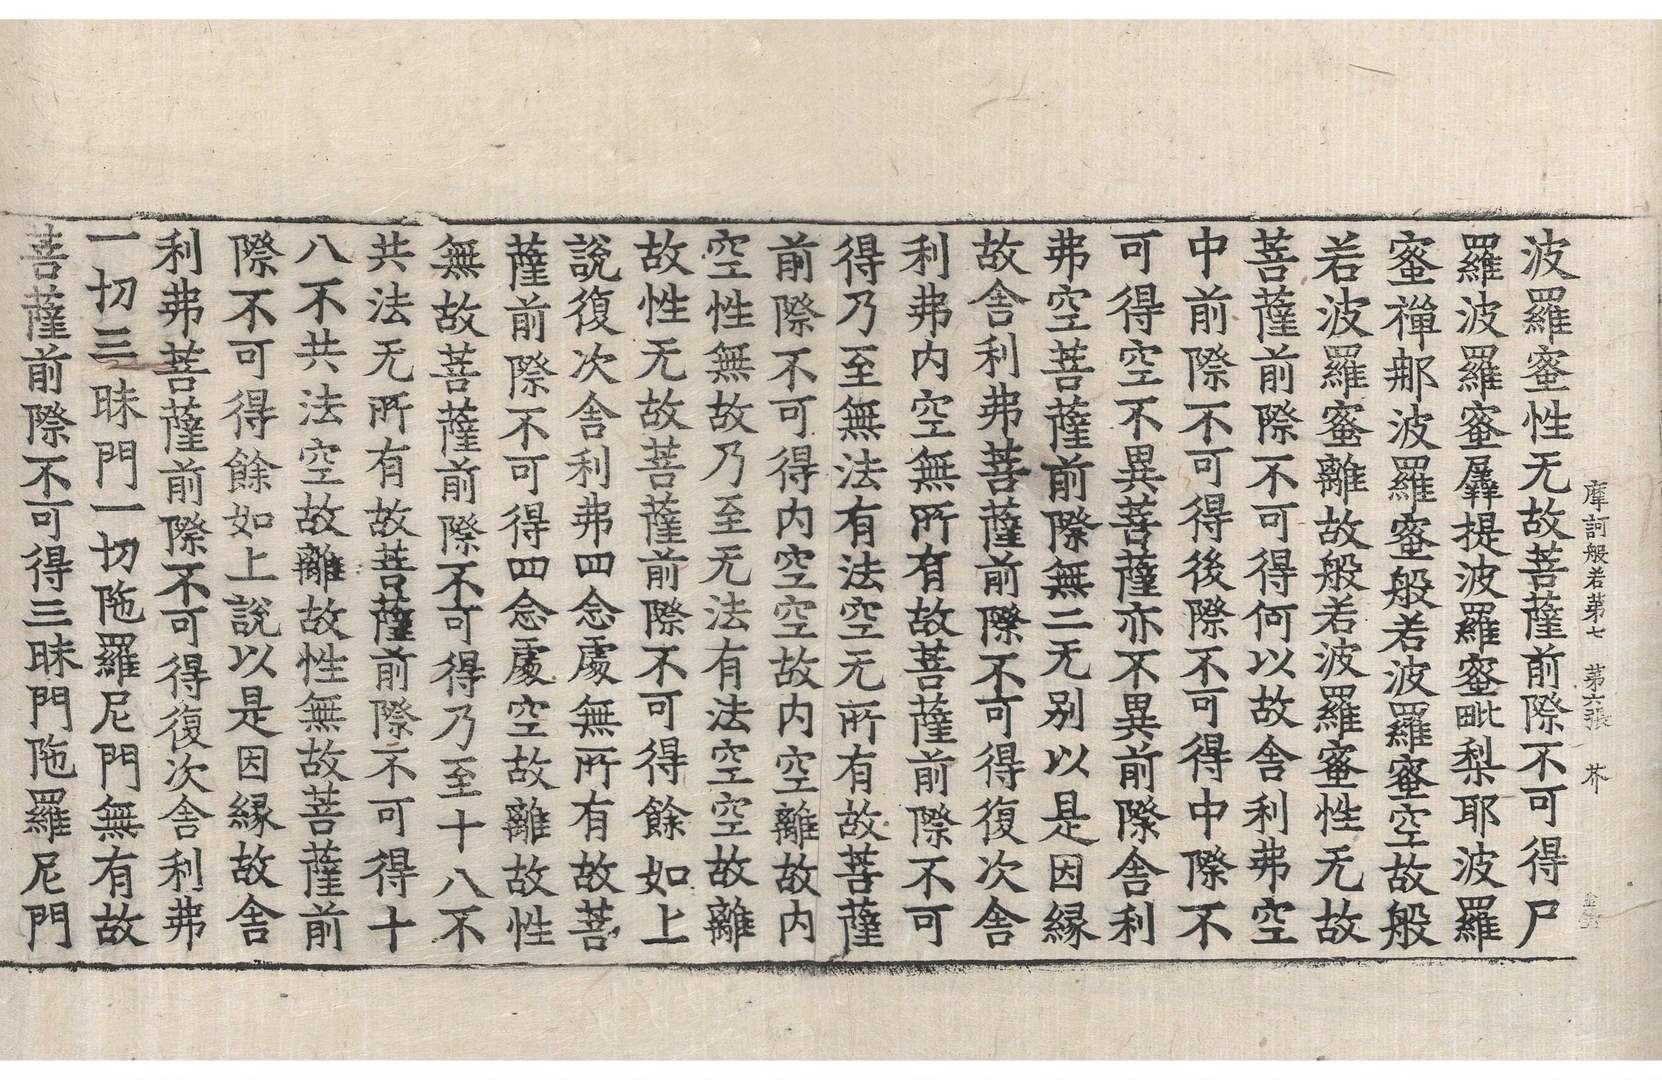 摩訶般若第七 第六張 芥
波羅蜜性无故菩薩前際不可得尸
羅波羅蜜羼提波羅蜜毗梨耶波羅
蜜禪那波羅蜜般若波羅蜜空故般
若波羅蜜離故般若波羅蜜性无故
菩薩前際不可得何以故舍利弗空
中前際不可得後際不可得中際不
可得空不異菩薩亦不異前際舍利
弗空菩薩前際無二无別以是因縁
故舍利弗菩薩前際不可得復次舍
利弗内空無所有故菩薩前際不可
得乃至無法有法空无所有故菩薩
前際不可得内空空故内空離故内
空性無故乃至无法有法空空故離
故性无故菩薩前際不可得餘如上
說復次舍利弗四念處無所有故菩
薩前際不可得四念處空故離故性
無故菩薩前際不可得乃至十八不
共法无所有故菩薩前際不可得十
八不共法空故離故性無故菩薩前
際不可得餘如上說以是因縁故舍
利弗菩薩前際不可得復次舍利弗
一切三昧門一切陁羅尼門無有故
菩薩前際不可得三昧門陁羅尼門